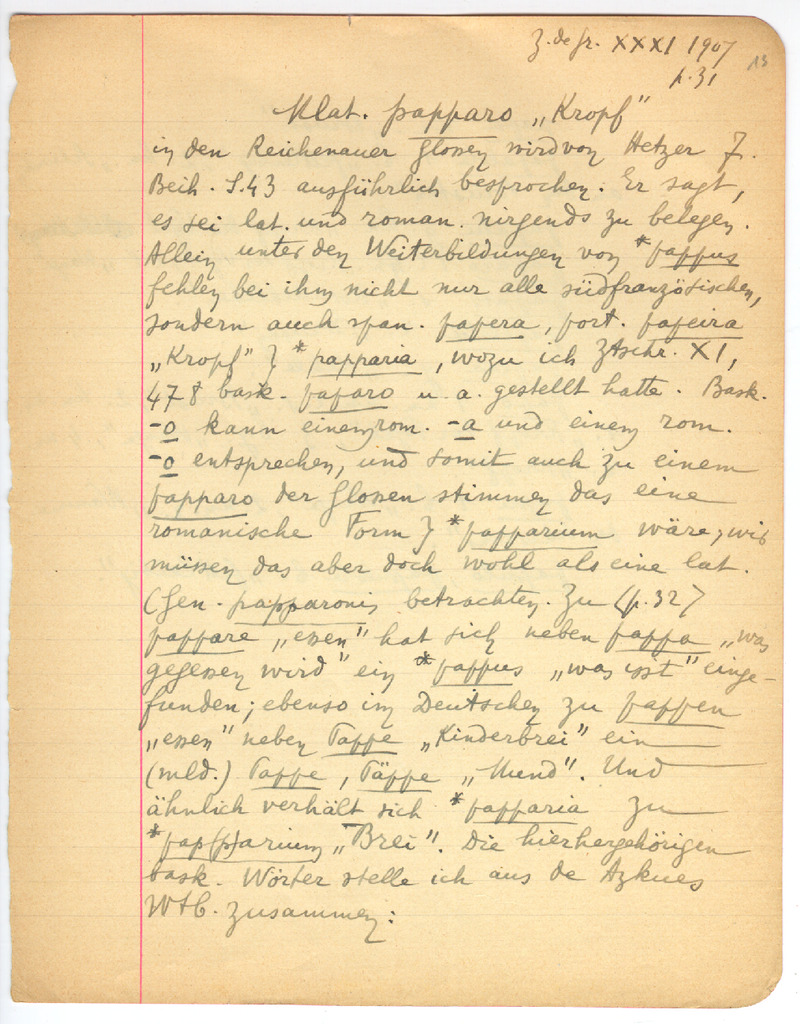 Z. de fr. XXXI 1907
p. 31
13
Mlat. papparo „Kropf“
in den Reichenauer Glossen wird von Hetzer Z.
Beih. S. 43 ausführlich besprochen. Er sagt,
es sei lat. und roman. nirgends zu belegen.
Allein unter den Weiterbildungen von *pappus
fehlen bei ihm nicht nur alle südfranzösischen,
sondern auch span. papera, port. papeira
„Kropf“ } *papparia, wozu ich Ztschr. XI,
478 bask. paparo u. a. gestellt hatte. Bask.
-o kann einem rom. -a und einem rom.
-o entsprechen, und somit auch zu einem
papparo der Glossen stimmen das eine
romanische Form } *papparium wäre; wir
müssen das aber doch wohl als eine lat.
(Gen. papparonis betrachten. Zu (p. 32)
pappare „essen“ hat sich neben pappa „was
gegessen wird“ ein *pappus „was isst“ einge-
funden; ebenso im Deutschen zu pappen
„essen“ neben Pappe „Kinderbrei“ ein
(mld.) Pappe, Päppe „Mund“. Und
ähnlich verhält sich *papparia zu
*pap(p)arium „Brei“. Die hierhergehörigen
bask. Wörter stelle ich aus de Azkues
Wtb. zusammen: